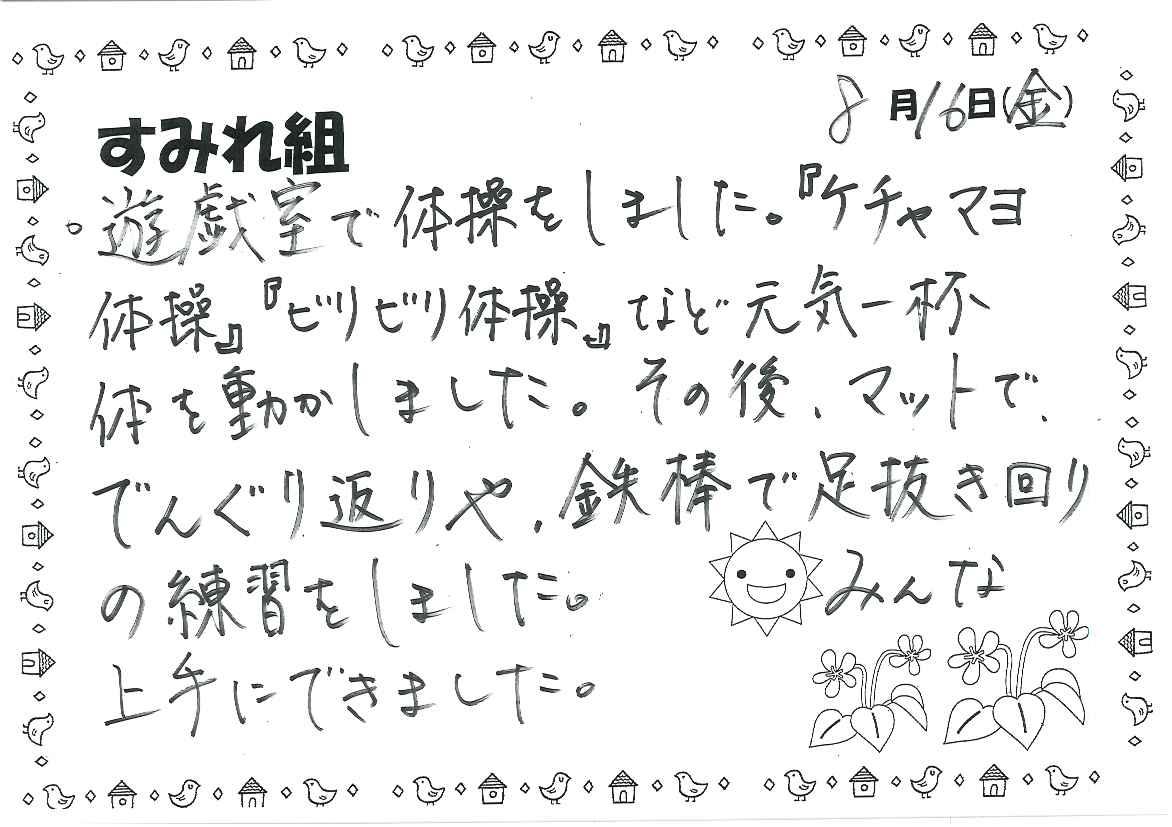 8月16日(金)
すみれ組
。遊戯室で体操をしました。『ケチャマヨ
体操』『ビリビリ体操』など元気一杯
体を動かしました。その後、マットで、
でんぐり返りや、鉄棒で足抜き回り
の練習をしました。 みんな
上手にできました。